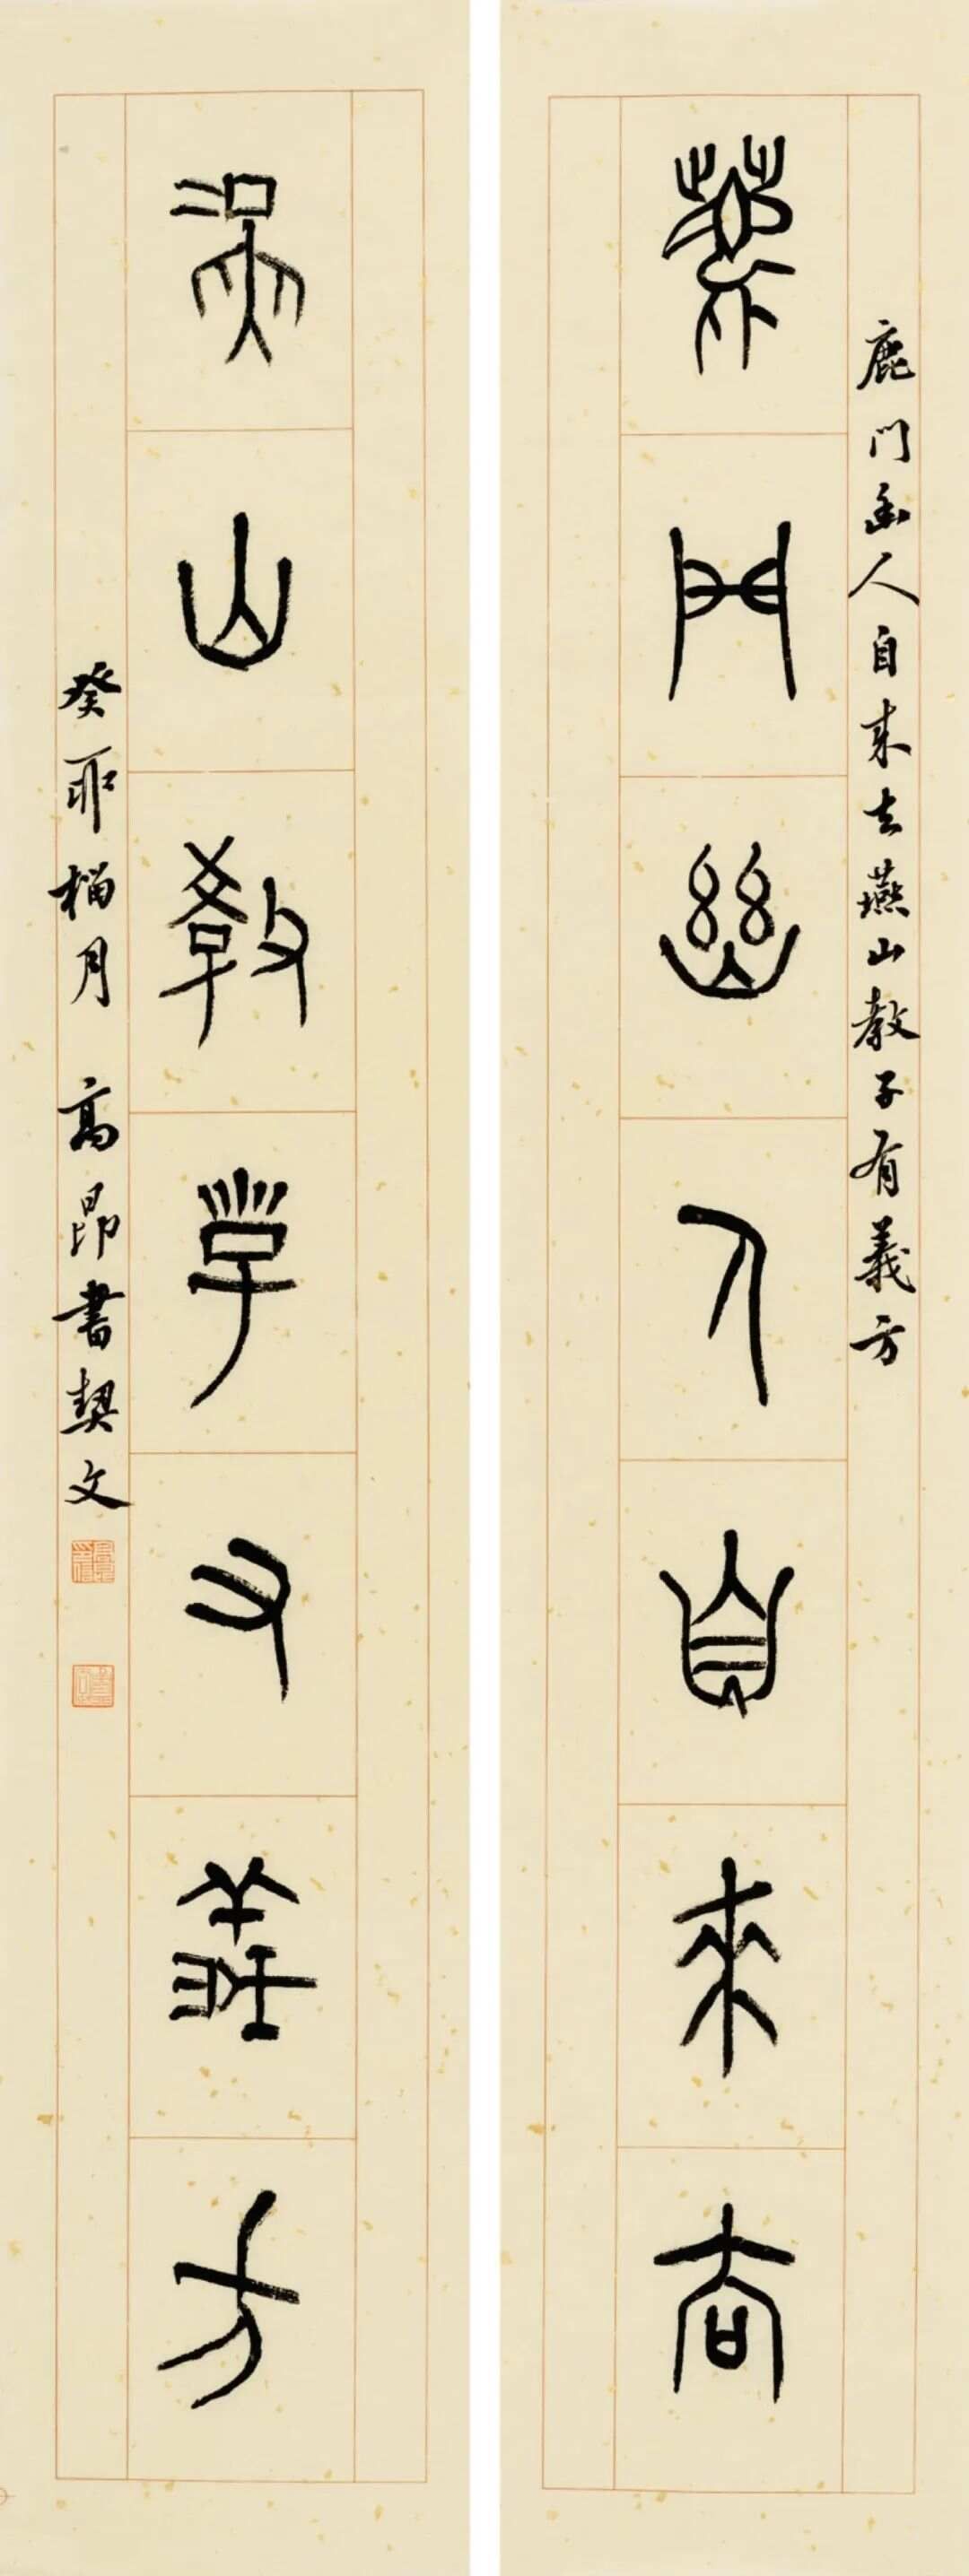 鹿門幽人自來去燕山教子有義方
鹿門幽人自來去
燕山教子有義方
癸卯榴月 高昂書契文